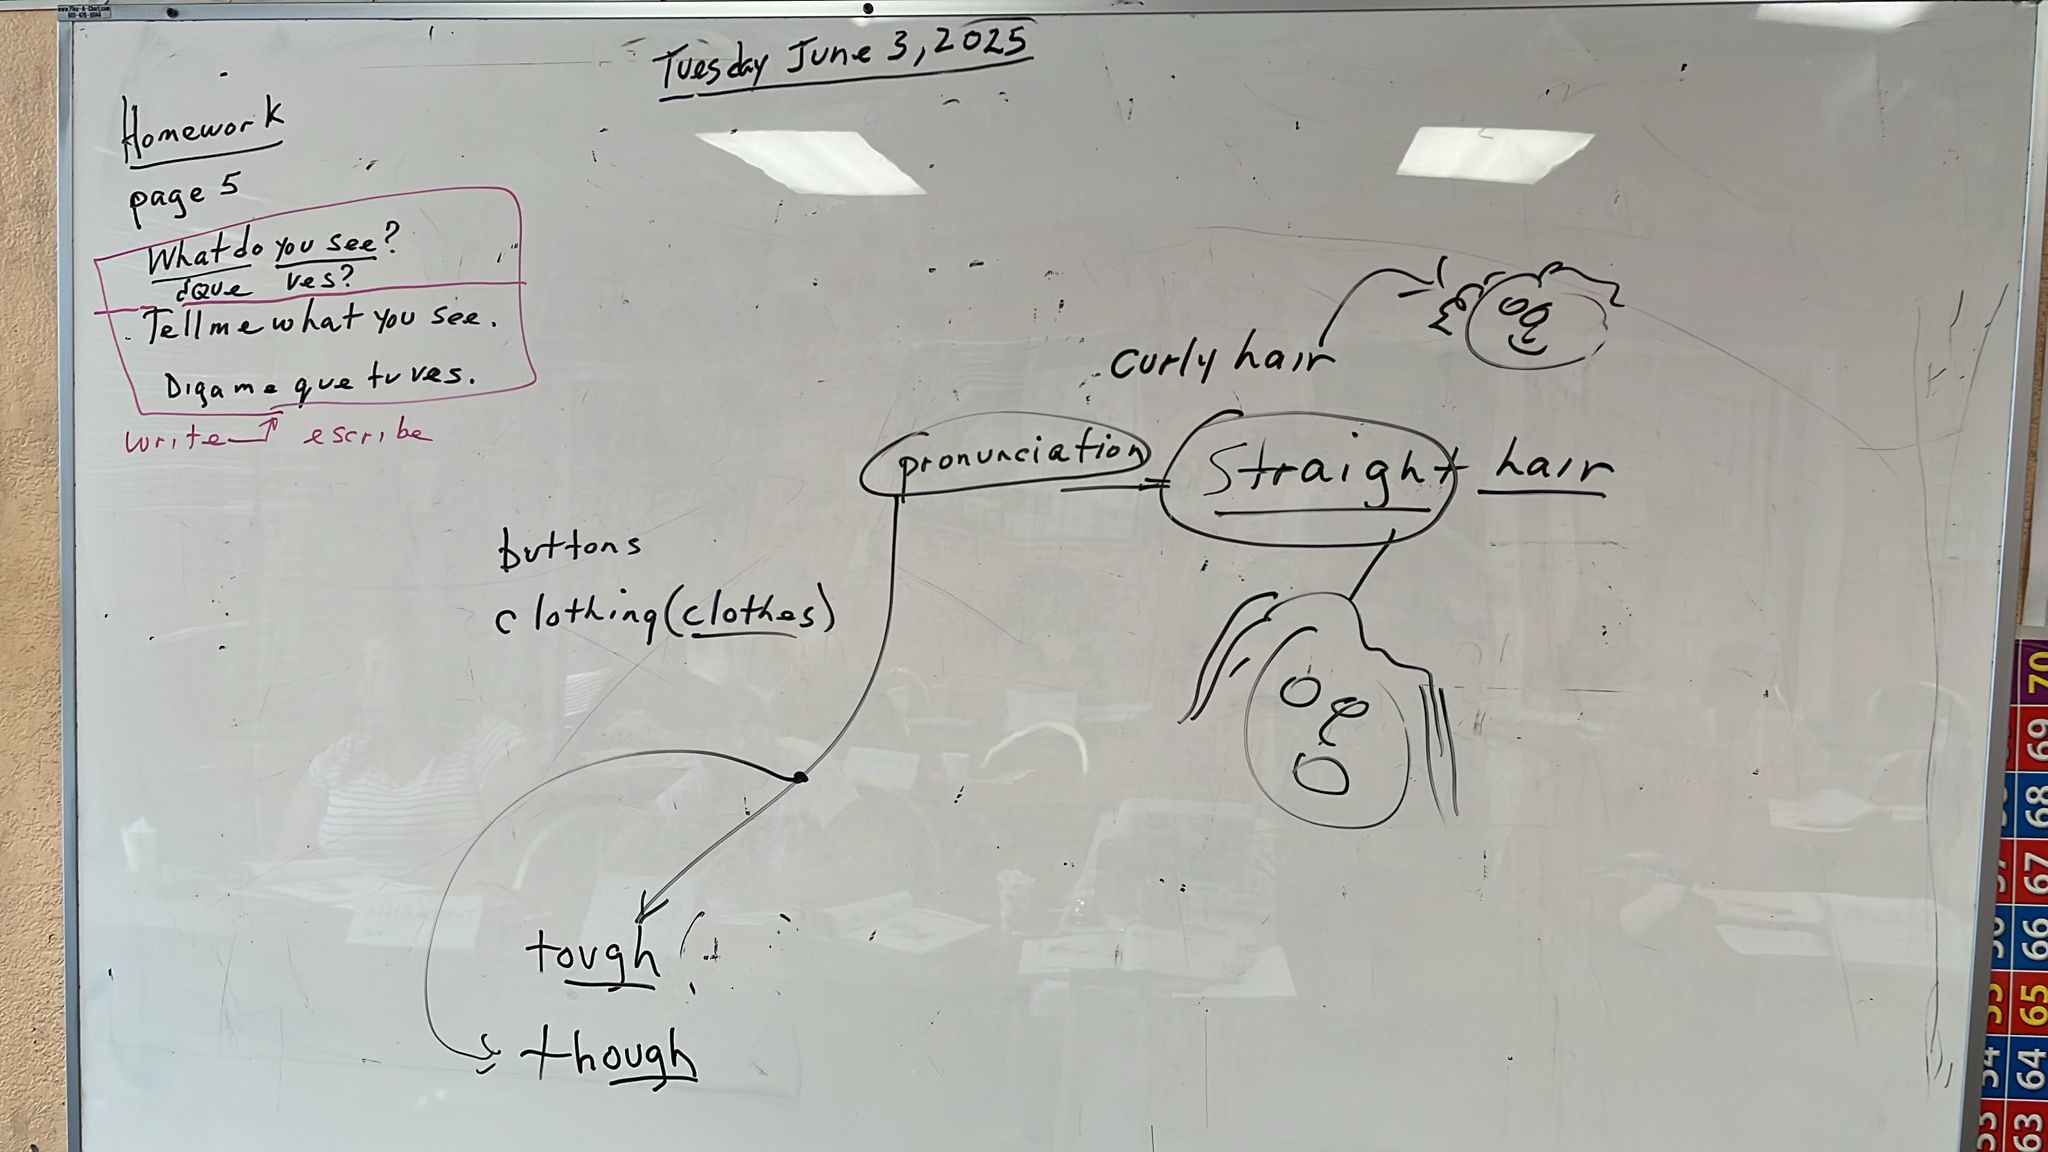 Tuesday June 3, 2025
Homework
page 5
What do you see?
¿Que ves?
Tell me what you see.
Digame que tu ves.
write escribe
curly hair
pronunciation
Straight hair
buttons
clothing (clothes)
tough
though
70
69
68
67
66
65
64
63